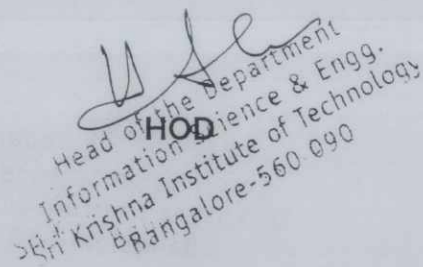 Head of the Department
HOD
Information Science & Engg.
Sri Krishna Institute of Technology
Bangalore-560 090